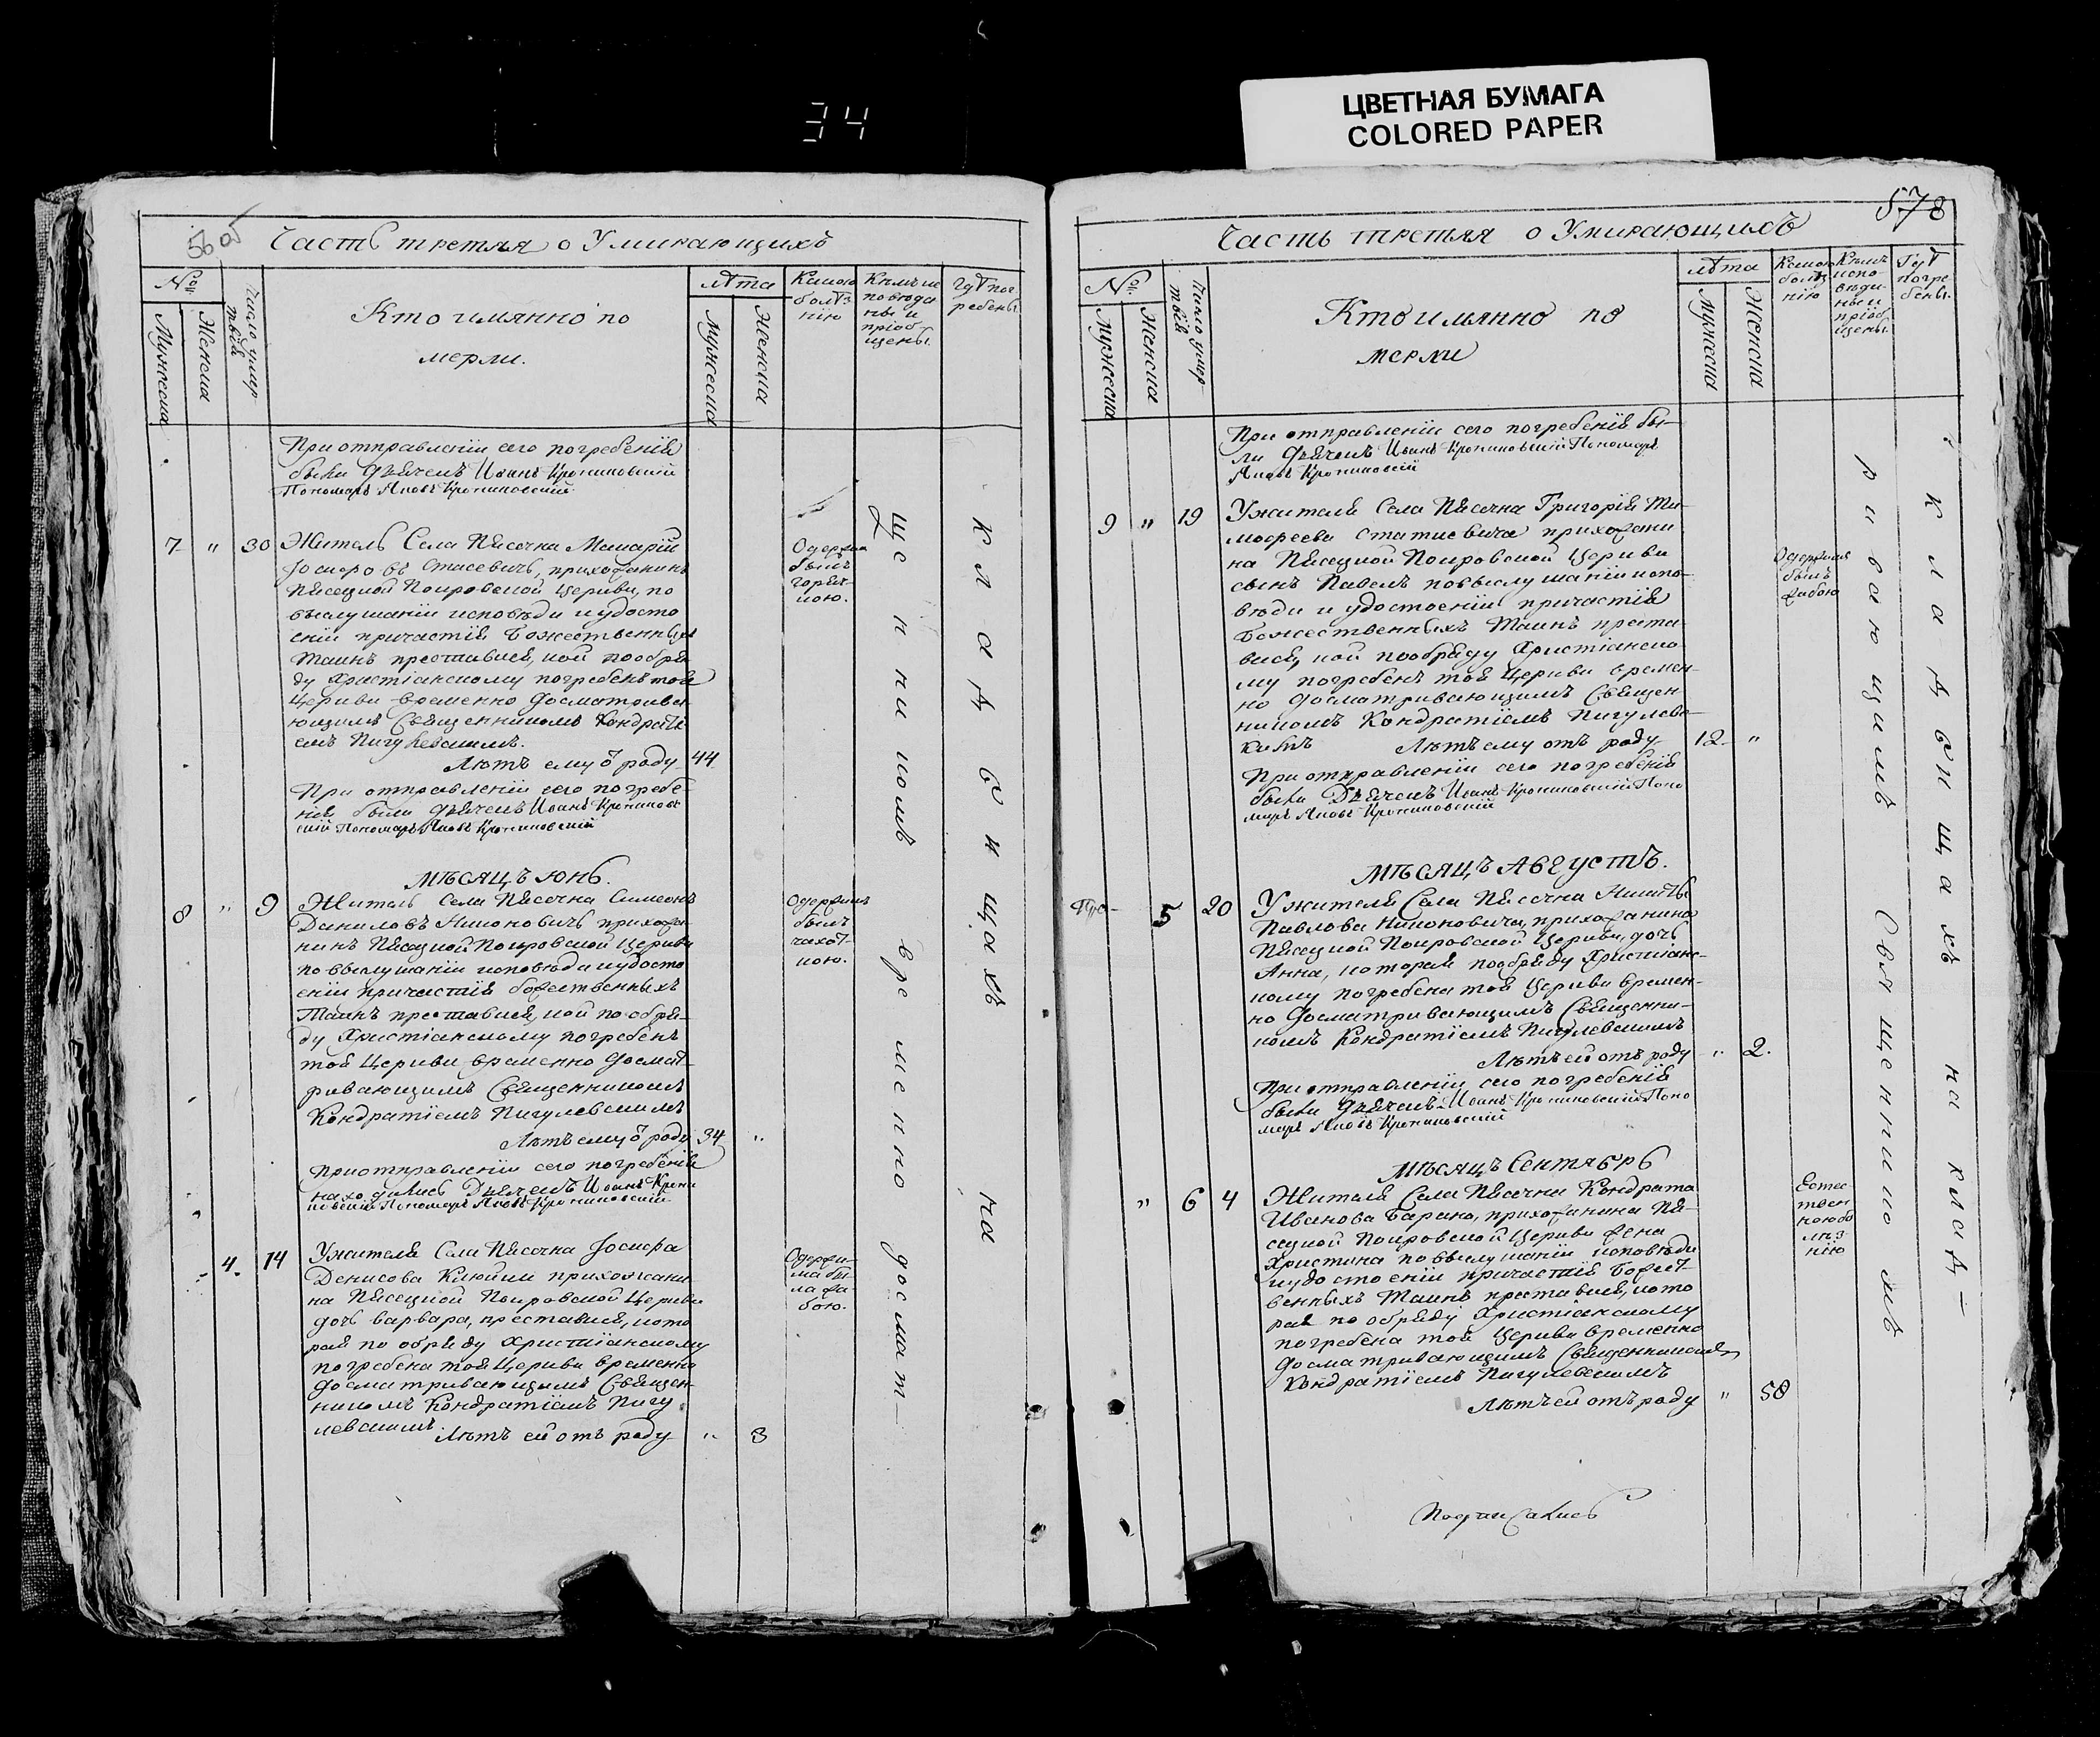 34
ЦВЕТНАЯ БУМАГА
COLORED PAPER
56 об
Часть третяя о Умирающихъ
№
Мужеска
Женска
Число умер-
твія
Кто имянно по
мерли.
лѣта
Мужеска
Женска
Какою
болѣз
нію
Кѣмъ ис
повѣда
ны и
пріоб
щены.
Гдѣ пог
ребены
При отправленіи сего погребенія
были Дьячекъ Иванъ Крониковскій
Пономарь Яковъ Крониковскій
7 " 30
Житель Села Пясочна Макарій
Іосифовъ Стасевичъ, прихожанинъ
Пясецкой Покровской Церкви, по
выслушаніи исповѣди и удосто
еніи причастія Божественныхъ
Таинъ преставися, кой по обря
ду Христіанскому погребенъ той
Церкви временно досматрива
ющимъ Священникомъ Кондраті
емъ Пигулевскимъ.
Лѣтъ ему ѿ роду 44
Одержим
былъ
горяч-
кою.
При отправленіи сего погребе-
нія были Дьячекъ Иванъ Кроников
скій Пономарь Яковъ Крониковскій
МѢСЯЦЪ ЮНЬ.
8 " 9
Житель Села Пясочна Симеонъ
Даниловъ Никоновичъ прихожа
нинъ Пясецкой Покровской Церкви
по выслушаніи исповѣди и удосто
еніи причастія божественныхъ
Таинъ преставися, кой по обря-
ду Христіанскому погребенъ
той Церкви временно досмат-
ривающимъ Священникомъ
Кондратіемъ Пигулевскимъ
Лѣтъ ему ѿ роду 34 "
Одержимъ
былъ
чахот-
кою.
При отправленіи сего погребенія
находились Дьячекъ Иванъ Крони
ковскій Пономарь Яковъ Крониковскій
4. 14
У жителя Села Пясочна Іосифа
Денисова прихожани
на Пясецкой Покровской Церкви
дочь Варвара, преставися, кото
рая по обряду Христіанскому
погребена той Церкви временно
досматривающимъ Священ-
никомъ Кондратіемъ Пигу
левскимъ. Лѣтъ ей отъ роду " 3
Одержи-
ма бы-
ла жа-
бою.
Щенникомъ временно досмат-
Кладбищахъ на
578
Часть третяя о Умирающихъ
№
Мужеска
Женска
Число умер-
твія
Кто имянно по
мерли
лѣта
Мужеска
Женска
Какою
болѣз
нію
Кѣмъ
испо-
вѣда-
ны и
пріоб
щены.
Гдѣ
погре-
бены.
При отправленіи сего погребенія бы-
ли Дьячекъ Иванъ Крониковскій Пономарь
Яковъ Крониковскій
9 " 19
У жителя Села Пясочна Григорія Ти-
мофеева Статкевича прихожани
на Пясецкой Покровской Церкви
сынъ Павелъ по выслушаніи испо-
вѣди и удостоеніи причастія
Божественныхъ Таинъ преста-
вися, кой по обряду Христіанско-
му погребенъ той Церкви времен-
но досматривающимъ Священ-
никомъ Кондратіемъ Пигулевс-
кимъ Лѣтъ ему отъ роду 12 "
Одержимъ
былъ
жабою
При отправленіи сего погребенія
были Дьячекъ Иванъ Крониковскій Поно
марь Яковъ Крониковскій
МѢСЯЦЪ АВГУСТЪ.
5 20
У жителя Села Пясочна Никиты
Павлова Никоновича, прихожанина
Пясецкой Покровской Церкви, дочь
Анна, которая по обряду Христіанс-
кому погребена той Церкви времен-
но досматривающимъ Священни-
комъ Кондратіемъ Пигулевскимъ
Лѣтъ ей отъ роду " 2.
При отправленіи сего погребенія
были Дьячекъ Иванъ Крониковскій Поно
марь Яковъ Крониковскій
МѢСЯЦЪ СЕНТЯБРЬ
" 6 4
Жителя Села Пясочна Кондрата
Иванова Барана, прихожанина Пя-
сецкой Покровской Церкви жена
Христина по выслушаніи исповѣди
и удостоеніи причастія Божест-
венныхъ Таинъ преставися, кото
рая по обряду Христіанскому
погребена той Церкви временно
досматривающимъ Священникомъ
Кондратіемъ Пигулевскимъ
Лѣтъ ей отъ роду " 58
Естес-
твен
ною бо
лѣз-
нію
ривающимъ Священникомъ
Кладбищахъ на клад-